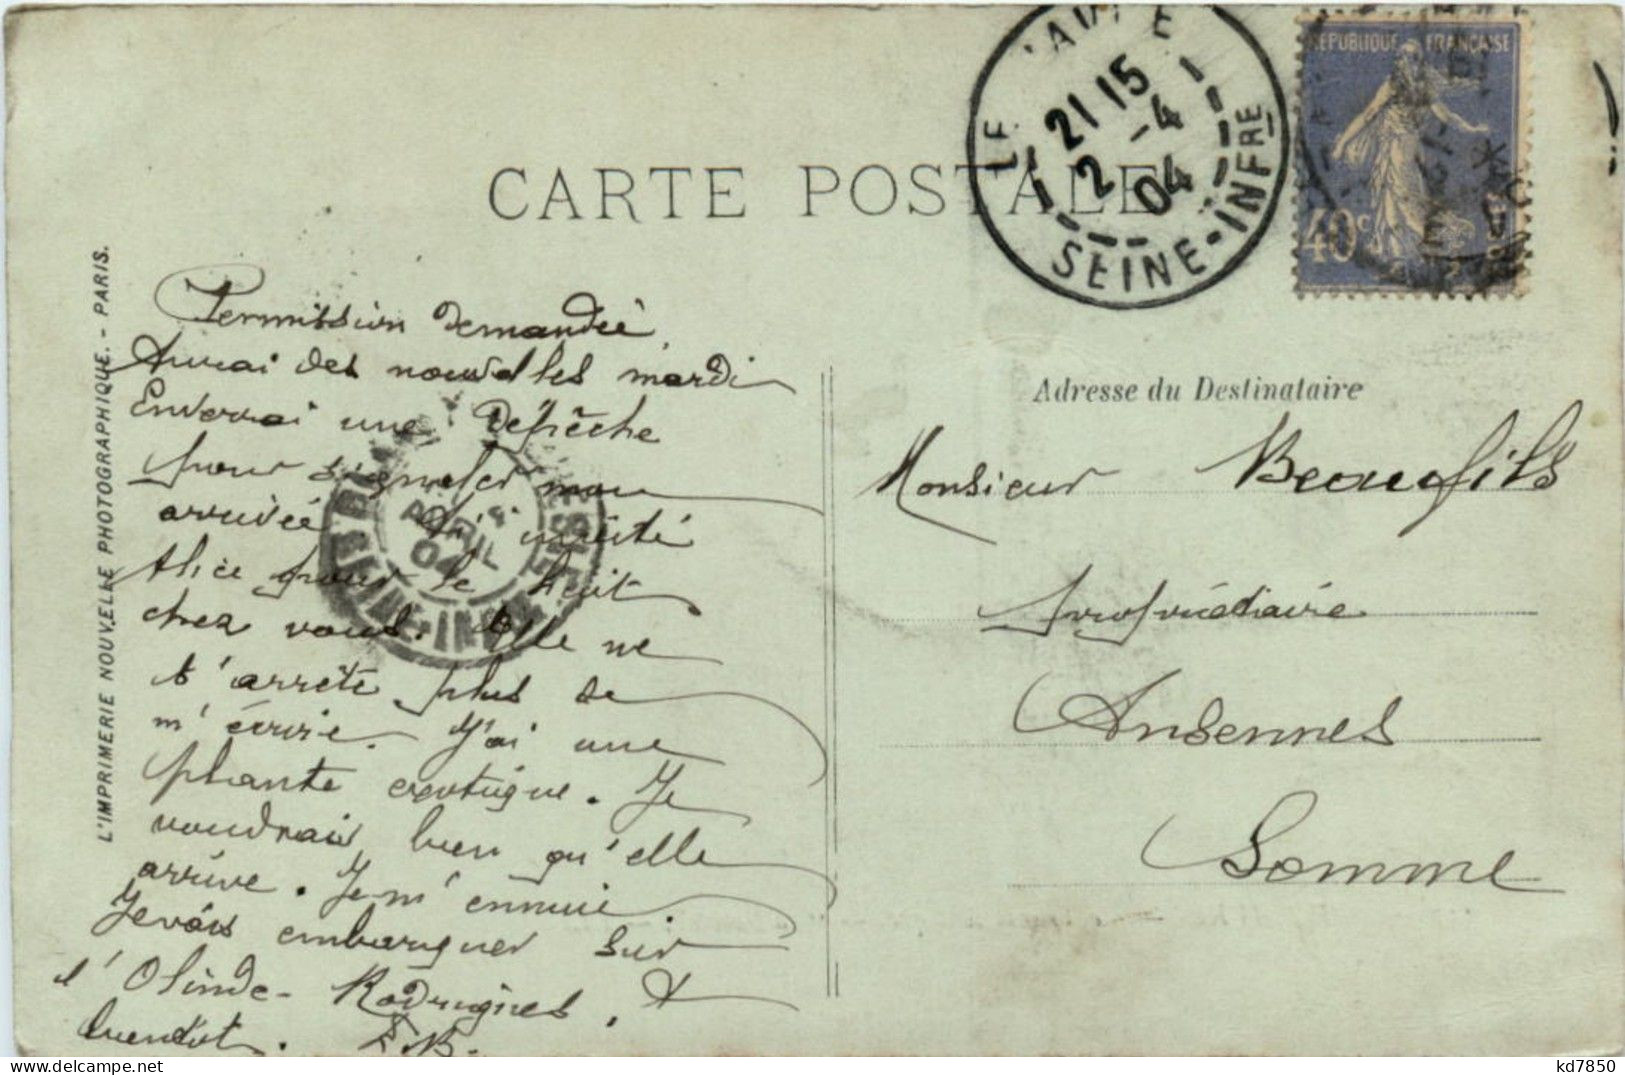 CARTE POSTALE
LE HAVRE
21 15
2 -4
04
SEINE-INFRE
REPUBLIQUE FRANÇAISE
40c
L'IMPRIMERIE NOUVELLE PHOTOGRAPHIQUE. - PARIS.
Permission demandée
Aurai des nouvelles mardi
Enverrai une dépêche
pour signaler mon
arrivée. J'ai invité
Alice pour le huit
chez vous. Elle ne
s'arrête plus de
m'écrire. J'ai une
plante exotique. Je
voudrais bien qu'elle
arrive. Je m'ennuie.
Je vais embarquer sur
l'Olinde-Rodrigues. A
bientôt. E.B.
AVRIL
04
SEINE-INFRE
Adresse du Destinataire
Monsieur Beaufils
propriétaire
Ansennes
Somme
kd7850